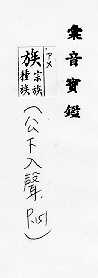 彙音寶鑑
族 宗族 種族
(公下入聲 P.151)